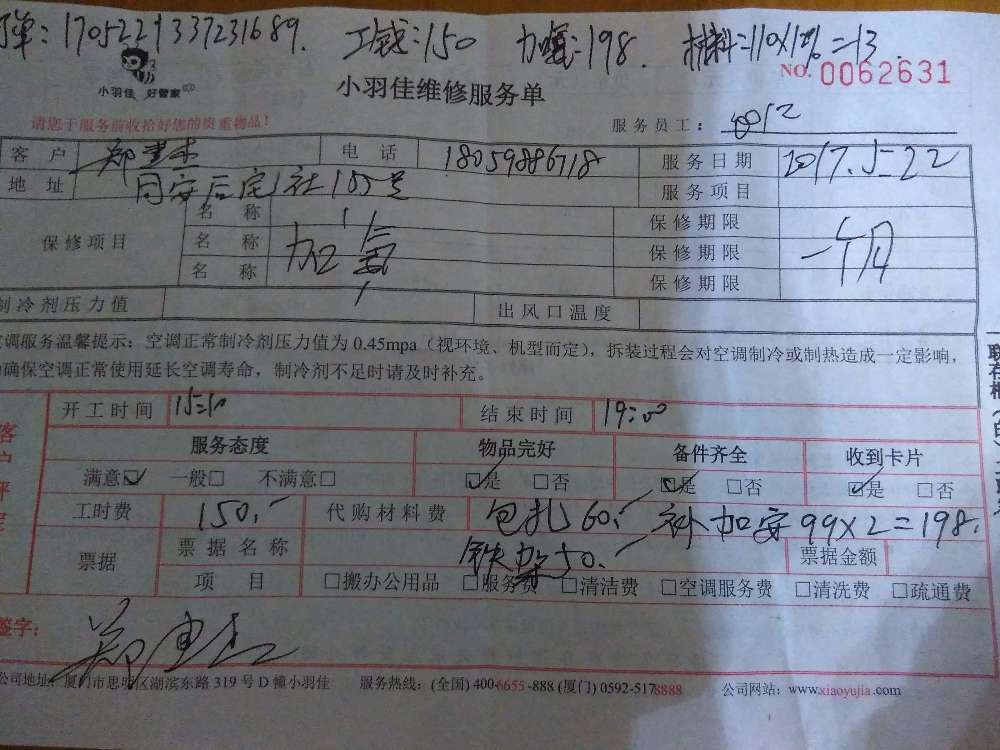 单: 1705229337231689. 工钱:150 加氟:198. 材料:110×12%=13.
小羽佳 好管家
小羽佳维修服务单
NO. 0062631
请您于服务前收拾好您的贵重物品!
服务员工: 8012
客户 郑 电话 18059886718 服务日期 2017.5.22
地址 同安后宅社105号 服务项目
保修项目 名称 保修期限
名称 加氟 保修期限 一个月
名称 保修期限
制冷剂压力值 出风口温度
空调服务温馨提示:空调正常制冷剂压力值为0.45mpa(视环境、机型而定),拆装过程会对空调制冷或制热造成一定影响,
为确保空调正常使用延长空调寿命,制冷剂不足时请及时补充。
开工时间 15:10 结束时间 19:00
服务态度 物品完好 备件齐全 收到卡片
满意☑ 一般□ 不满意□ ☑是 □否 ☑是 □否 ☑是 □否
工时费 150.- 代购材料费 包扎60.- 补加安99×2=198.
铁架50.-
票据 票据名称 票据金额
项目 □搬办公用品 □服务费 □清洁费 □空调服务费 □清洗费 □疏通费
签字:
公司地址:厦门市思明区湖滨东路319号D幢小羽佳 服务热线:(全国)400-6655-888 (厦门)0592-5178888 公司网站:www.xiaoyujia.com